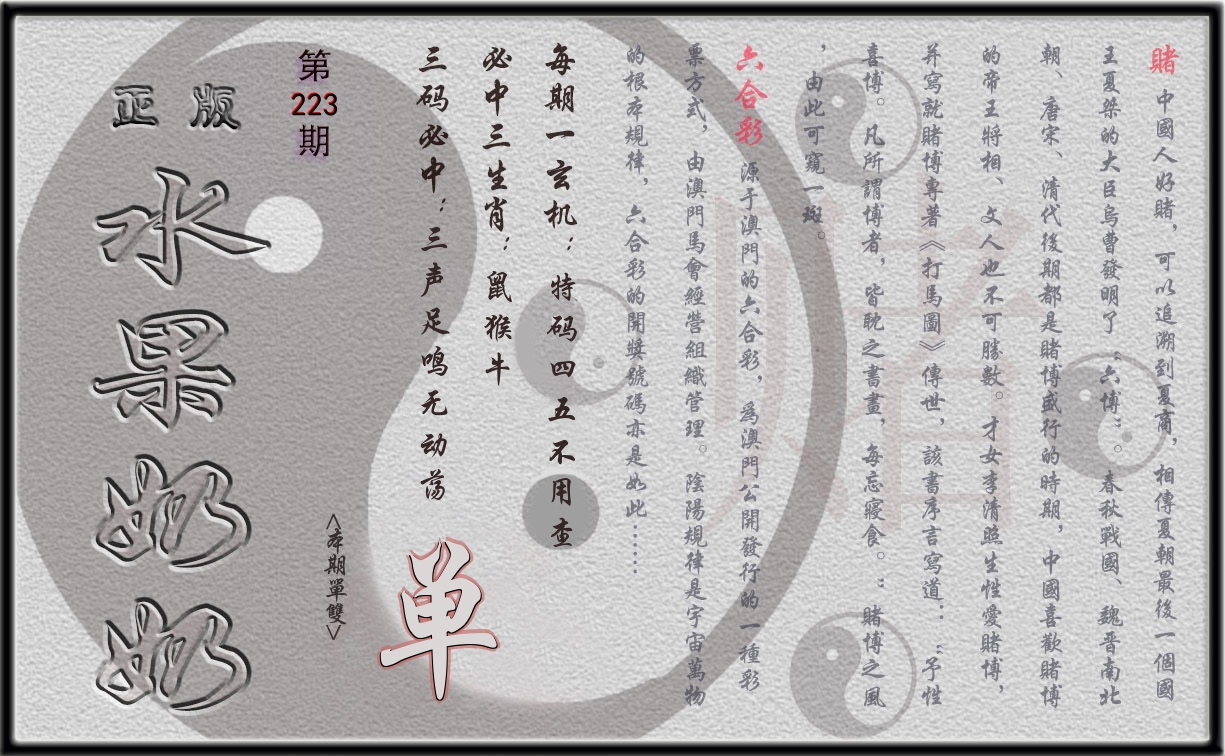 賭 中國人好賭，可以追溯到夏商，相傳夏朝最後一個國
王夏桀的大臣烏曹發明了“六博”。春秋戰國、魏晋南北
朝、唐宋、清代後期都是賭博盛行的時期，中國喜歡賭博
的帝王將相、文人也不可勝數。才女李清照生性愛賭博，
并寫就賭博專著《打馬圖》傳世，該書序言寫道：“予性
喜博。凡所謂博者，皆耽之書畫，每忘寢食。：賭博之風
，由此可窺一斑。
六合彩 源于澳門的六合彩，爲澳門公開發行的一種彩
票方式，由澳門馬會經營組織管理。陰陽規律是宇宙萬物
的根本規律，六合彩的開獎號碼亦是如此……
每期一玄机：特码四五不用查
必中三生肖：鼠猴牛
三码必中：三声足鸣无动荡
单
<本期單雙>
第
223
期
正版
水果奶奶
赌